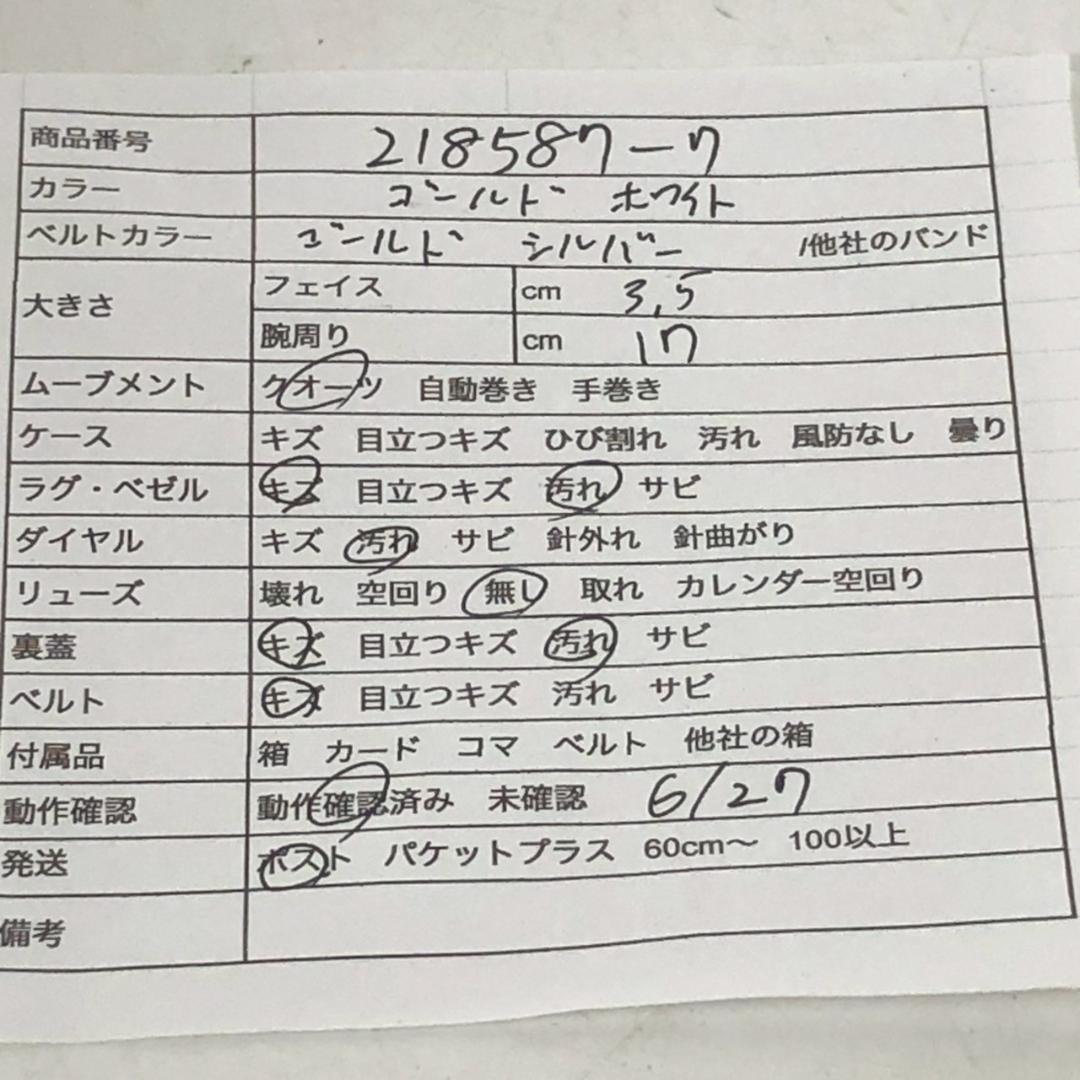 商品番号 218587-7
カラー ゴールド ホワイト
ベルトカラー ゴールド シルバー /他社のバンド
大きさ フェイス cm 3,5
腕周り cm 17
ムーブメント クオーツ 自動巻き 手巻き
ケース キズ 目立つキズ ひび割れ 汚れ 風防なし 曇り
ラグ・ベゼル キズ 目立つキズ 汚れ サビ
ダイヤル キズ 汚れ サビ 針外れ 針曲がり
リューズ 壊れ 空回り 無し 取れ カレンダー空回り
裏蓋 キズ 目立つキズ 汚れ サビ
ベルト キズ 目立つキズ 汚れ サビ
付属品 箱 カード コマ ベルト 他社の箱
動作確認 動作確認済み 未確認 6/27
発送 ポスト パケットプラス 60cm〜 100以上
備考